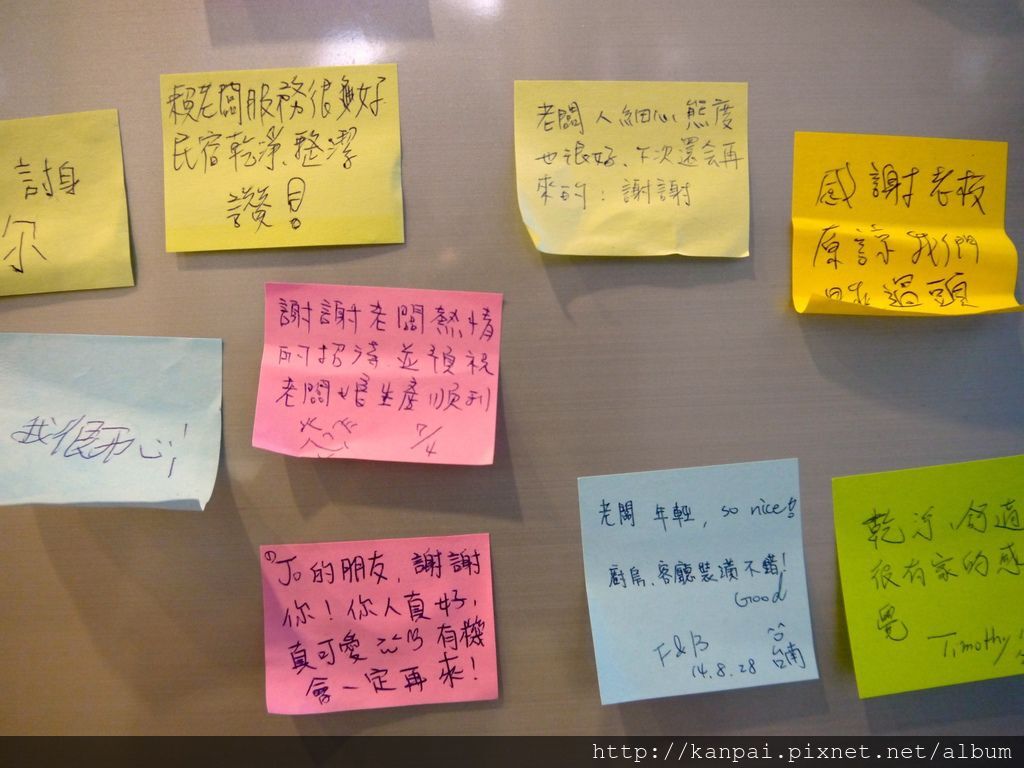 謝
尔
賴老闆服務很好
民宿乾淨、整潔
讚!
老闆人細心, 態度
也很好、下次還会再
來的! 謝謝
感謝老板
原諒我們
過頭
謝謝老闆熱情
的招待 並預祝
老闆娘生產順利
7/4
我很開心!
Jo的朋友, 謝謝
你! 你人真好,
真可愛 有機
會一定再來!
老闆 年輕, so nice
廚房、客廳裝潢不錯!
Good
F&B ^^
14.8.28 台南
乾淨、舒適
很有家的感
覺
Timothy
http://kanpai.pixnet.net/album